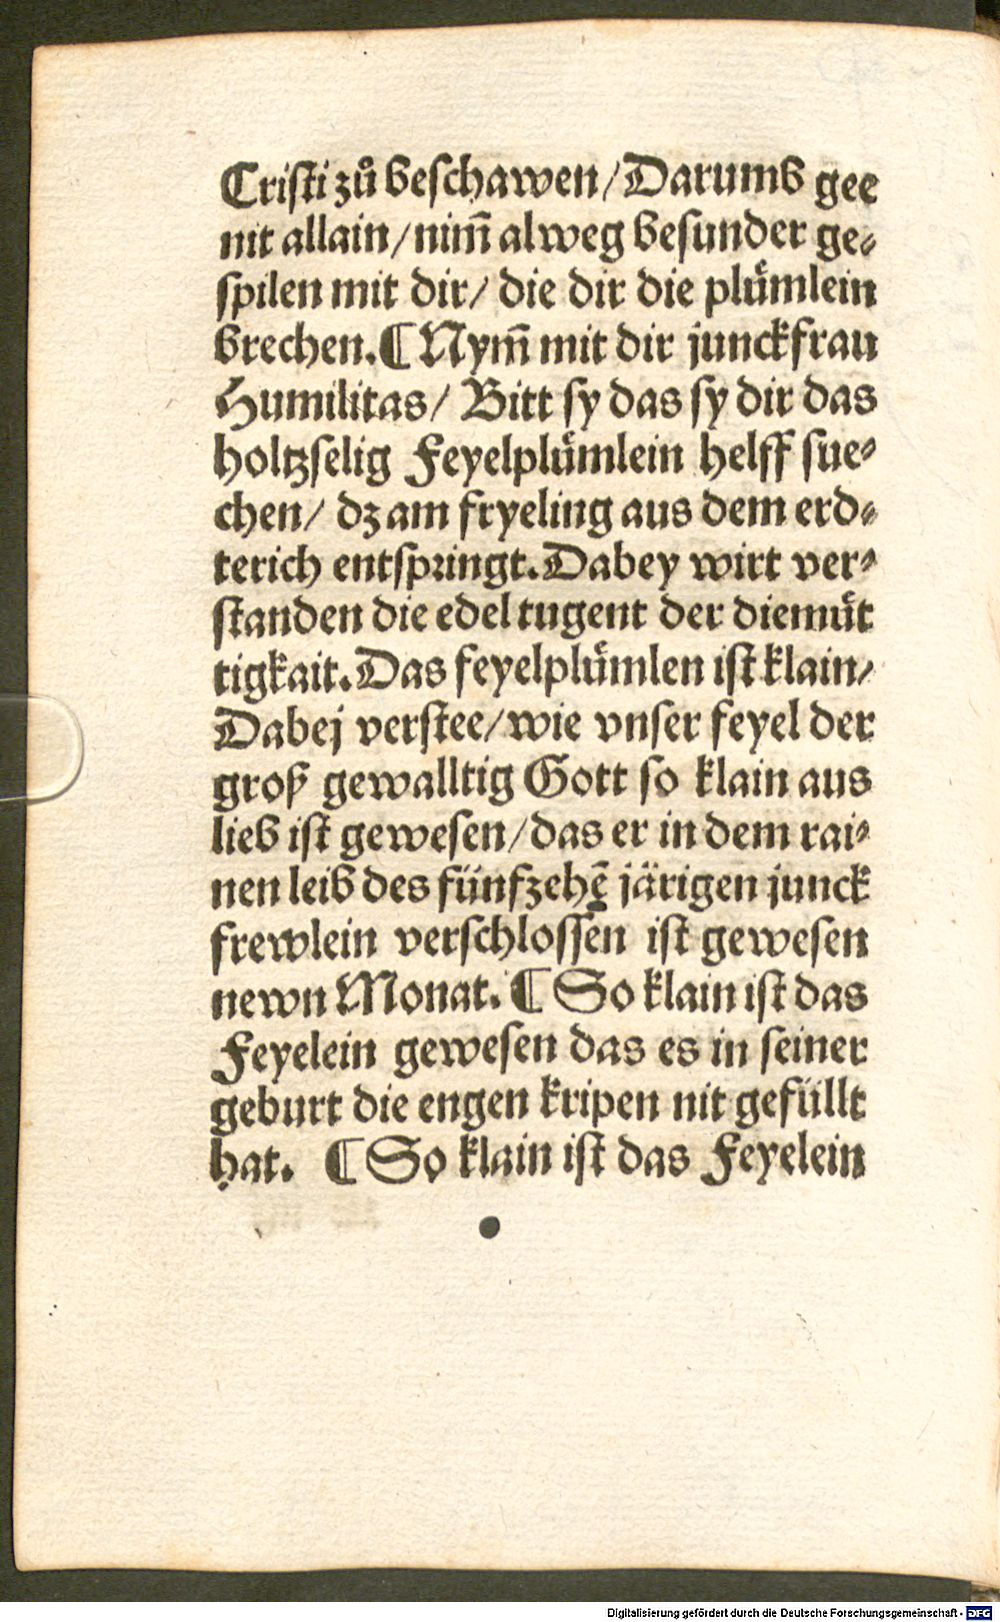 Cristi zů beschawen/Darumb gee
nit allain/nim̃ alweg besunder ge⸗
spilen mit dir/ die dir die pluͤmlein
brechen.¶ Nym̃ mit dir junckfrau
Humilitas/ Bitt sy das sy dir das
holtzselig Feyelpluͤmlein helff sue⸗
chen/ dz am fryeling aus dem erd⸗
terich entspringt.Dabey wirt ver⸗
standen die edel tugent der diemuͤt
tigkait.Das feyelpluͤmlen ist klain/
Dabej verstee/wie vnser feyel der
groß gewalltig Gott so klain aus
lieb ist gewesen/das er in dem rai⸗
nen leib des fünfzehē järigen junck
frewlein verschlossen ist gewesen
newn Monat. ¶ So klain ist das
Feyelein gewesen das es in seiner
geburt die engen kripen nit gefüllt
hat. ¶ So klain ist das Feyelein
Digitalisierung gefördert durch die Deutsche Forschungsgemeinschaft - DFG